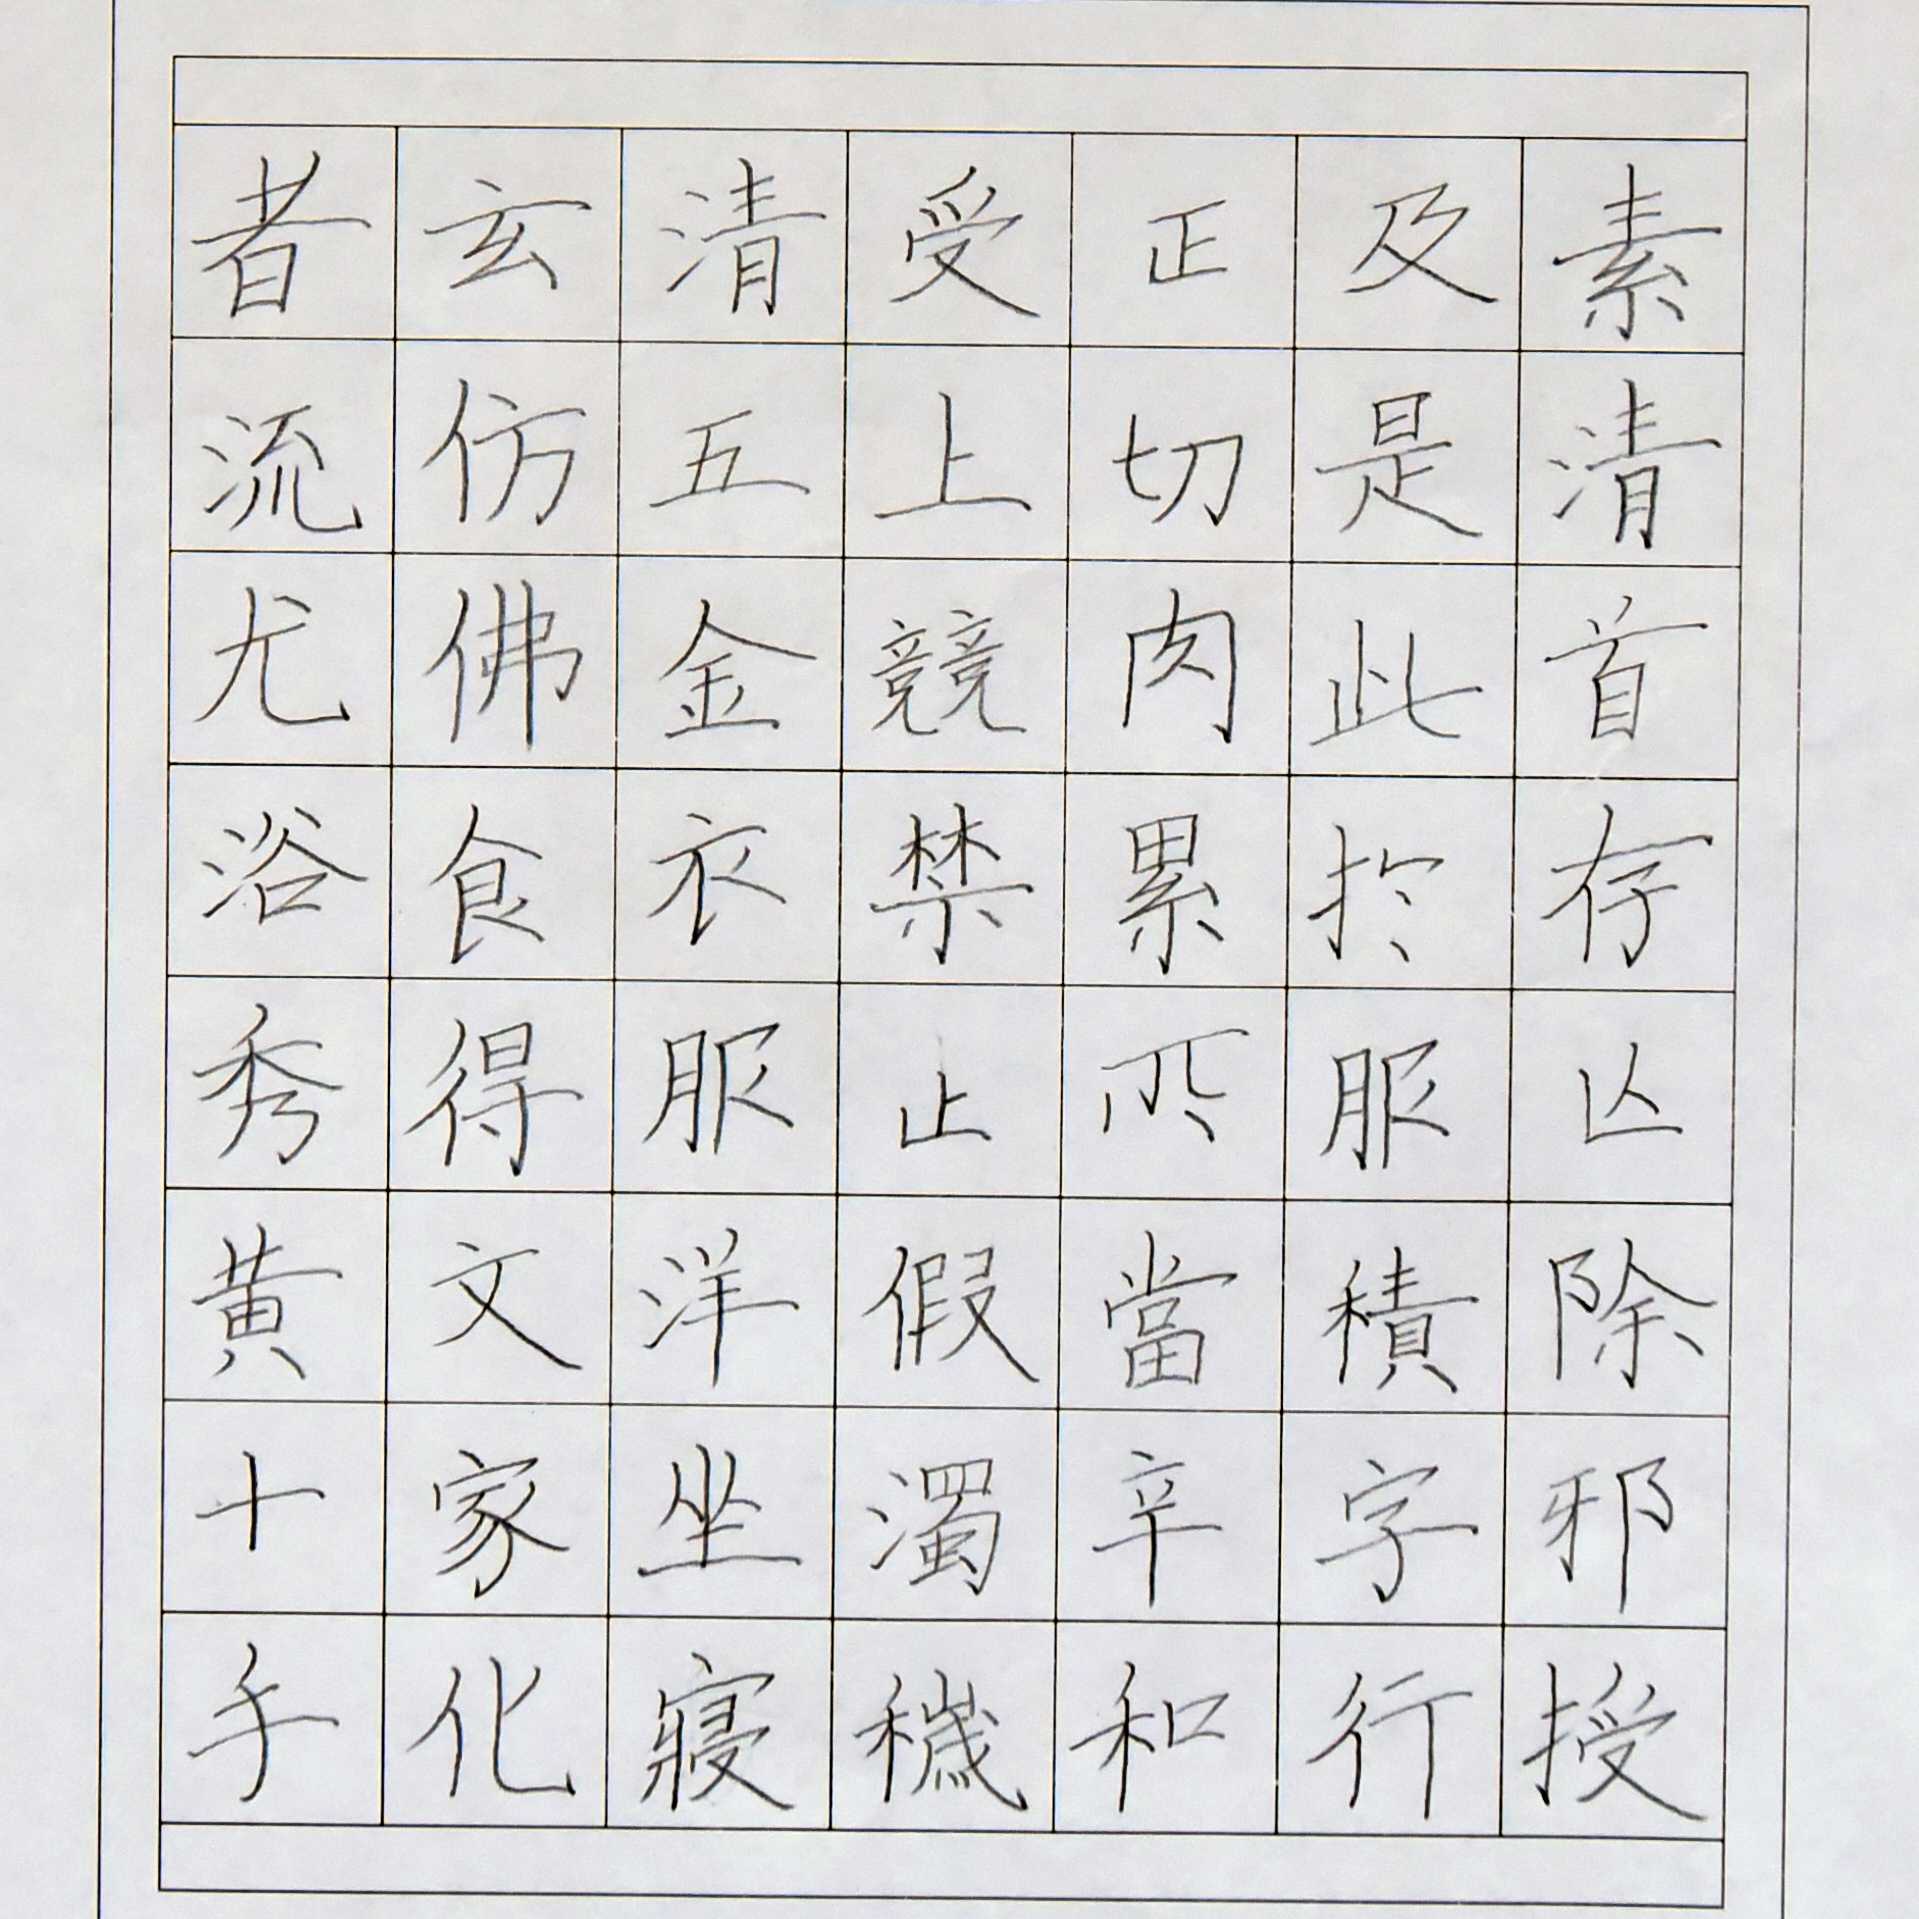 素清首存亾除邪授
及是此於服積字行
正切肉累所當辛和
受上競禁止假濁穢
清五金衣服洋坐寢
玄仿佛食得文家化
者流尤浴秀黄十手